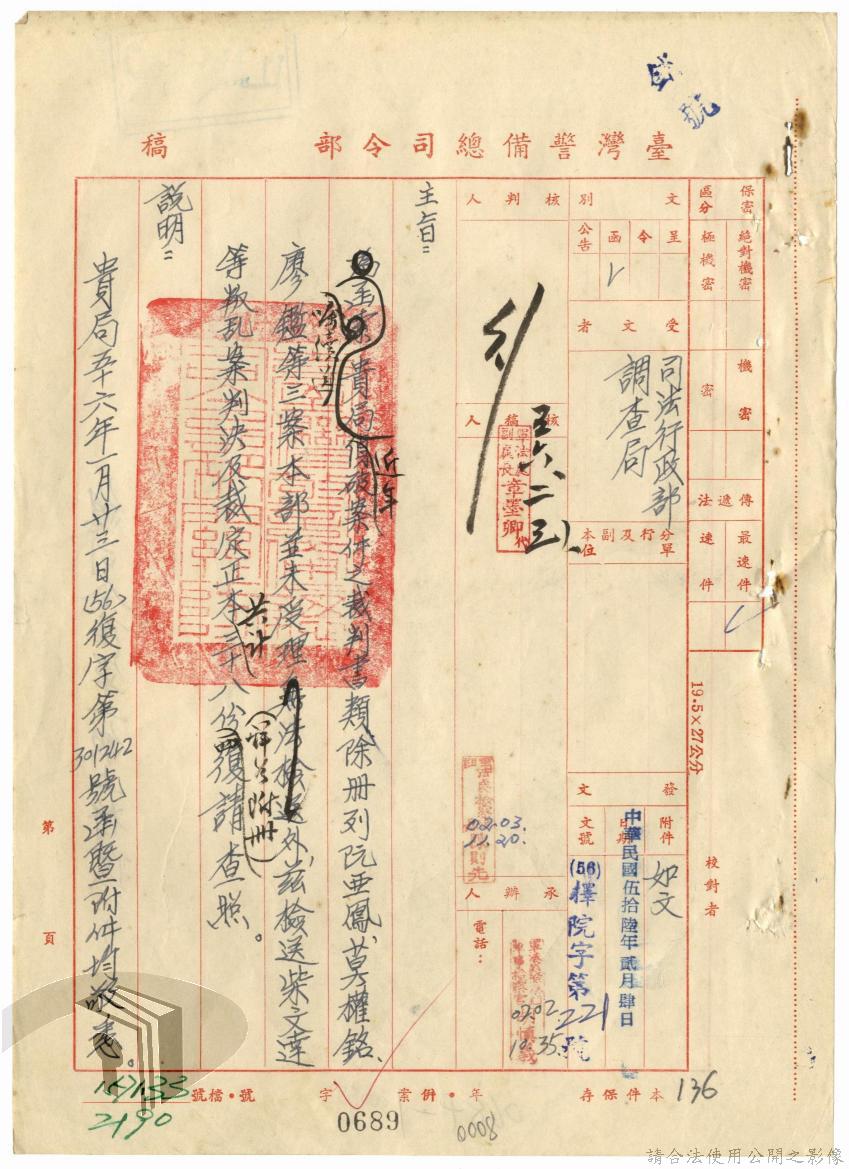 臺灣警備總司令部　稿
保密區分
絕對機密
極機密
機密
密
傳遞法
最速件
速件
19.5×27公分
校對者
文別
呈
令
函
公告
受文者
司法行政部
調查局
分行及副本單位
發文
附件
如文
日期
中華民國伍拾陸年貳月肆日
文號
(56)擇院字第221號
本件保存
136
核判人
五六、二、三、
核稿人
副處長章墨卿代
02.03.
11.20.
承辦人
電話：
02.02.
10.35.
主旨：
貴局近年偵破案件之裁判書類除冊列阮亜鳳、莫權銘、
廖鑑等三案本部並未受理無法檢送外，茲檢送柴文達
等叛乱案判決及裁定正本共計三十八份(詳如附冊)復請查照。
說明：
貴局五十六年一月廿三日(56)復字第301242號函暨附件均敬悉。
第　頁
年・併案　字
號・檔號
157133
2190
0689
0008
請合法使用公開之影像